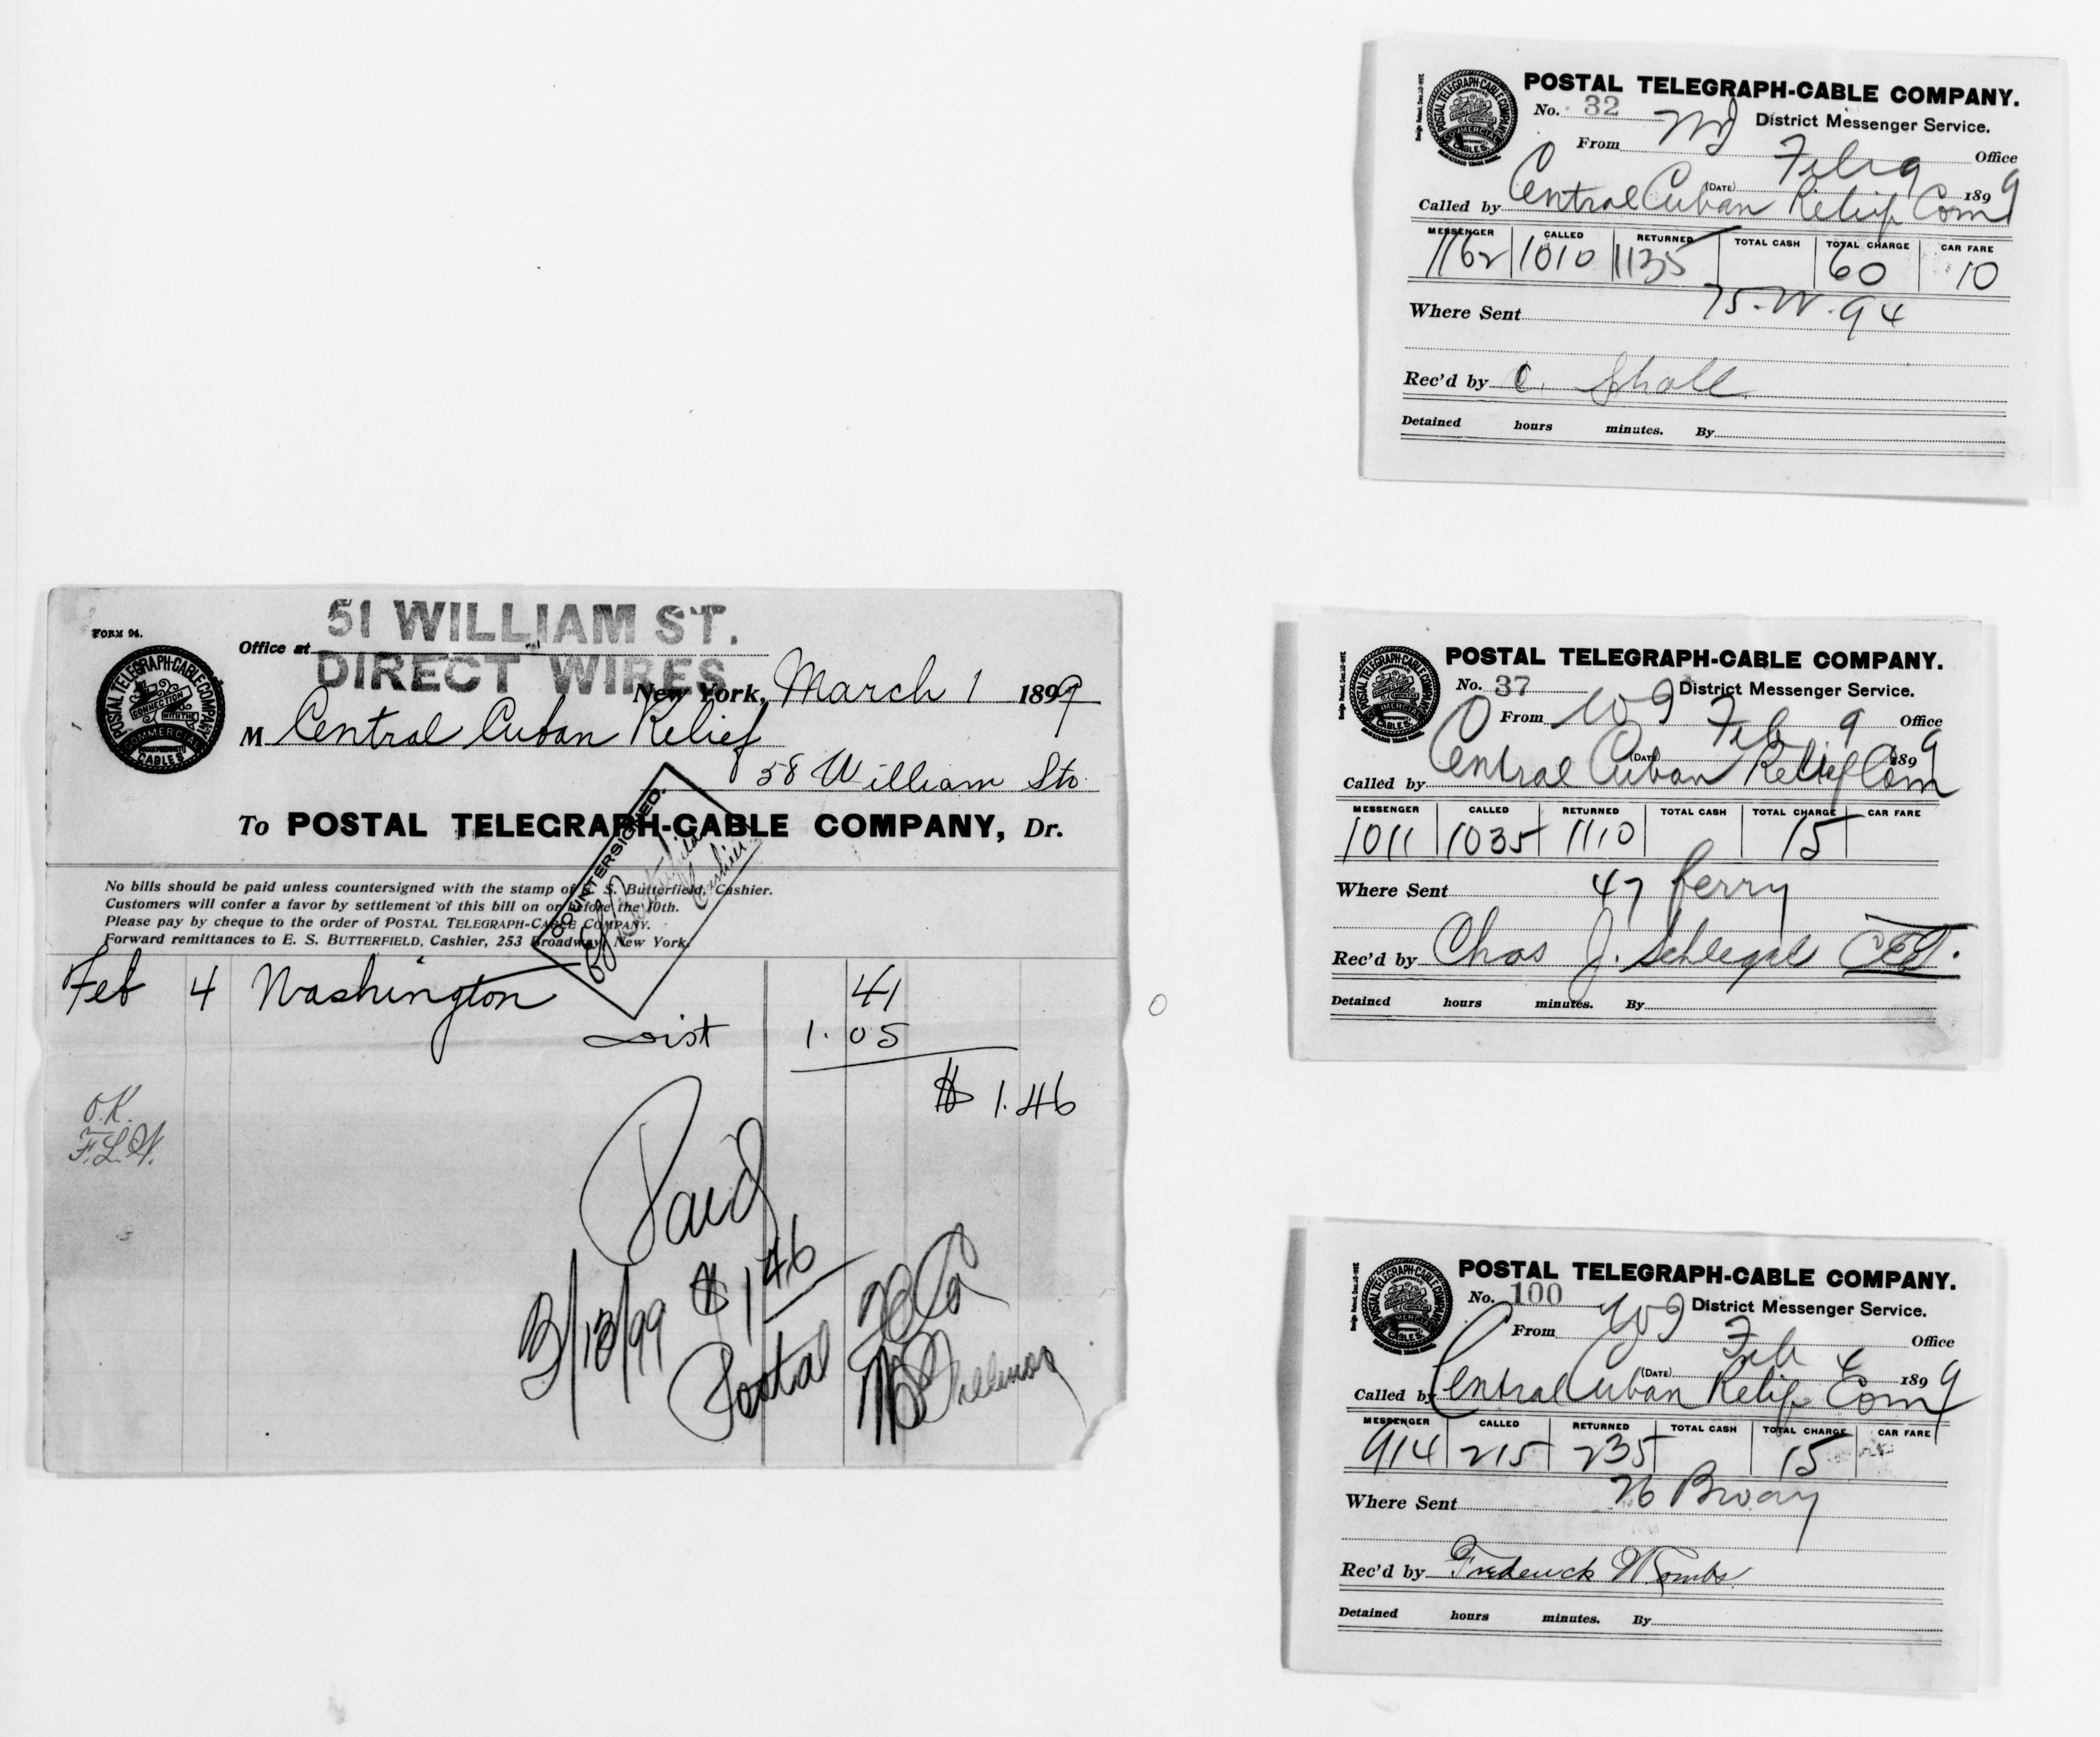 FORM 94.
51 WILLIAM ST.
Office at
DIRECT WIRES
New York, March 1 1899
M Central Cuban Relief
58 William St
To POSTAL TELEGRAPH-CABLE COMPANY, Dr.
COUNTERSIGNED.
Cashier
No bills should be paid unless countersigned with the stamp of E. S. Butterfield, Cashier.
Customers will confer a favor by settlement of this bill on or before the 10th.
Please pay by cheque to the order of POSTAL TELEGRAPH-CABLE COMPANY.
Forward remittances to E. S. BUTTERFIELD, Cashier, 253 Broadway, New York.
Feb 4 Washington 41
Dist 1.05
$ 1.46
O.K.
Paid
$1.46
3/13/99
Postal
POSTAL TELEGRAPH-CABLE COMPANY.
No. 32
District Messenger Service.
From Office
Feb 9
(DATE) 1899
Called by Central Cuban Relief Com
MESSENGER CALLED RETURNED TOTAL CASH TOTAL CHARGE CAR FARE
1162 1010 1135 60 10
Where Sent 75-W-94
Rec'd by C. Shall
Detained hours minutes. By
POSTAL TELEGRAPH-CABLE COMPANY.
No. 37 District Messenger Service.
From Office
Feb 9
(DATE) 1899
Called by Central Cuban Relief Com
MESSENGER CALLED RETURNED TOTAL CASH TOTAL CHARGE CAR FARE
1011 1035 1110 15
Where Sent 47 ferry
Rec'd by Chas J. Schlegal
Detained hours minutes. By
POSTAL TELEGRAPH-CABLE COMPANY.
No. 100
District Messenger Service.
From Office
Feb 4
(DATE) 1899
Called by Central Cuban Relief Com
MESSENGER CALLED RETURNED TOTAL CASH TOTAL CHARGE CAR FARE
914 215 235 15
Where Sent 26 Broay
Rec'd by Frederick Tombs
Detained hours minutes. By